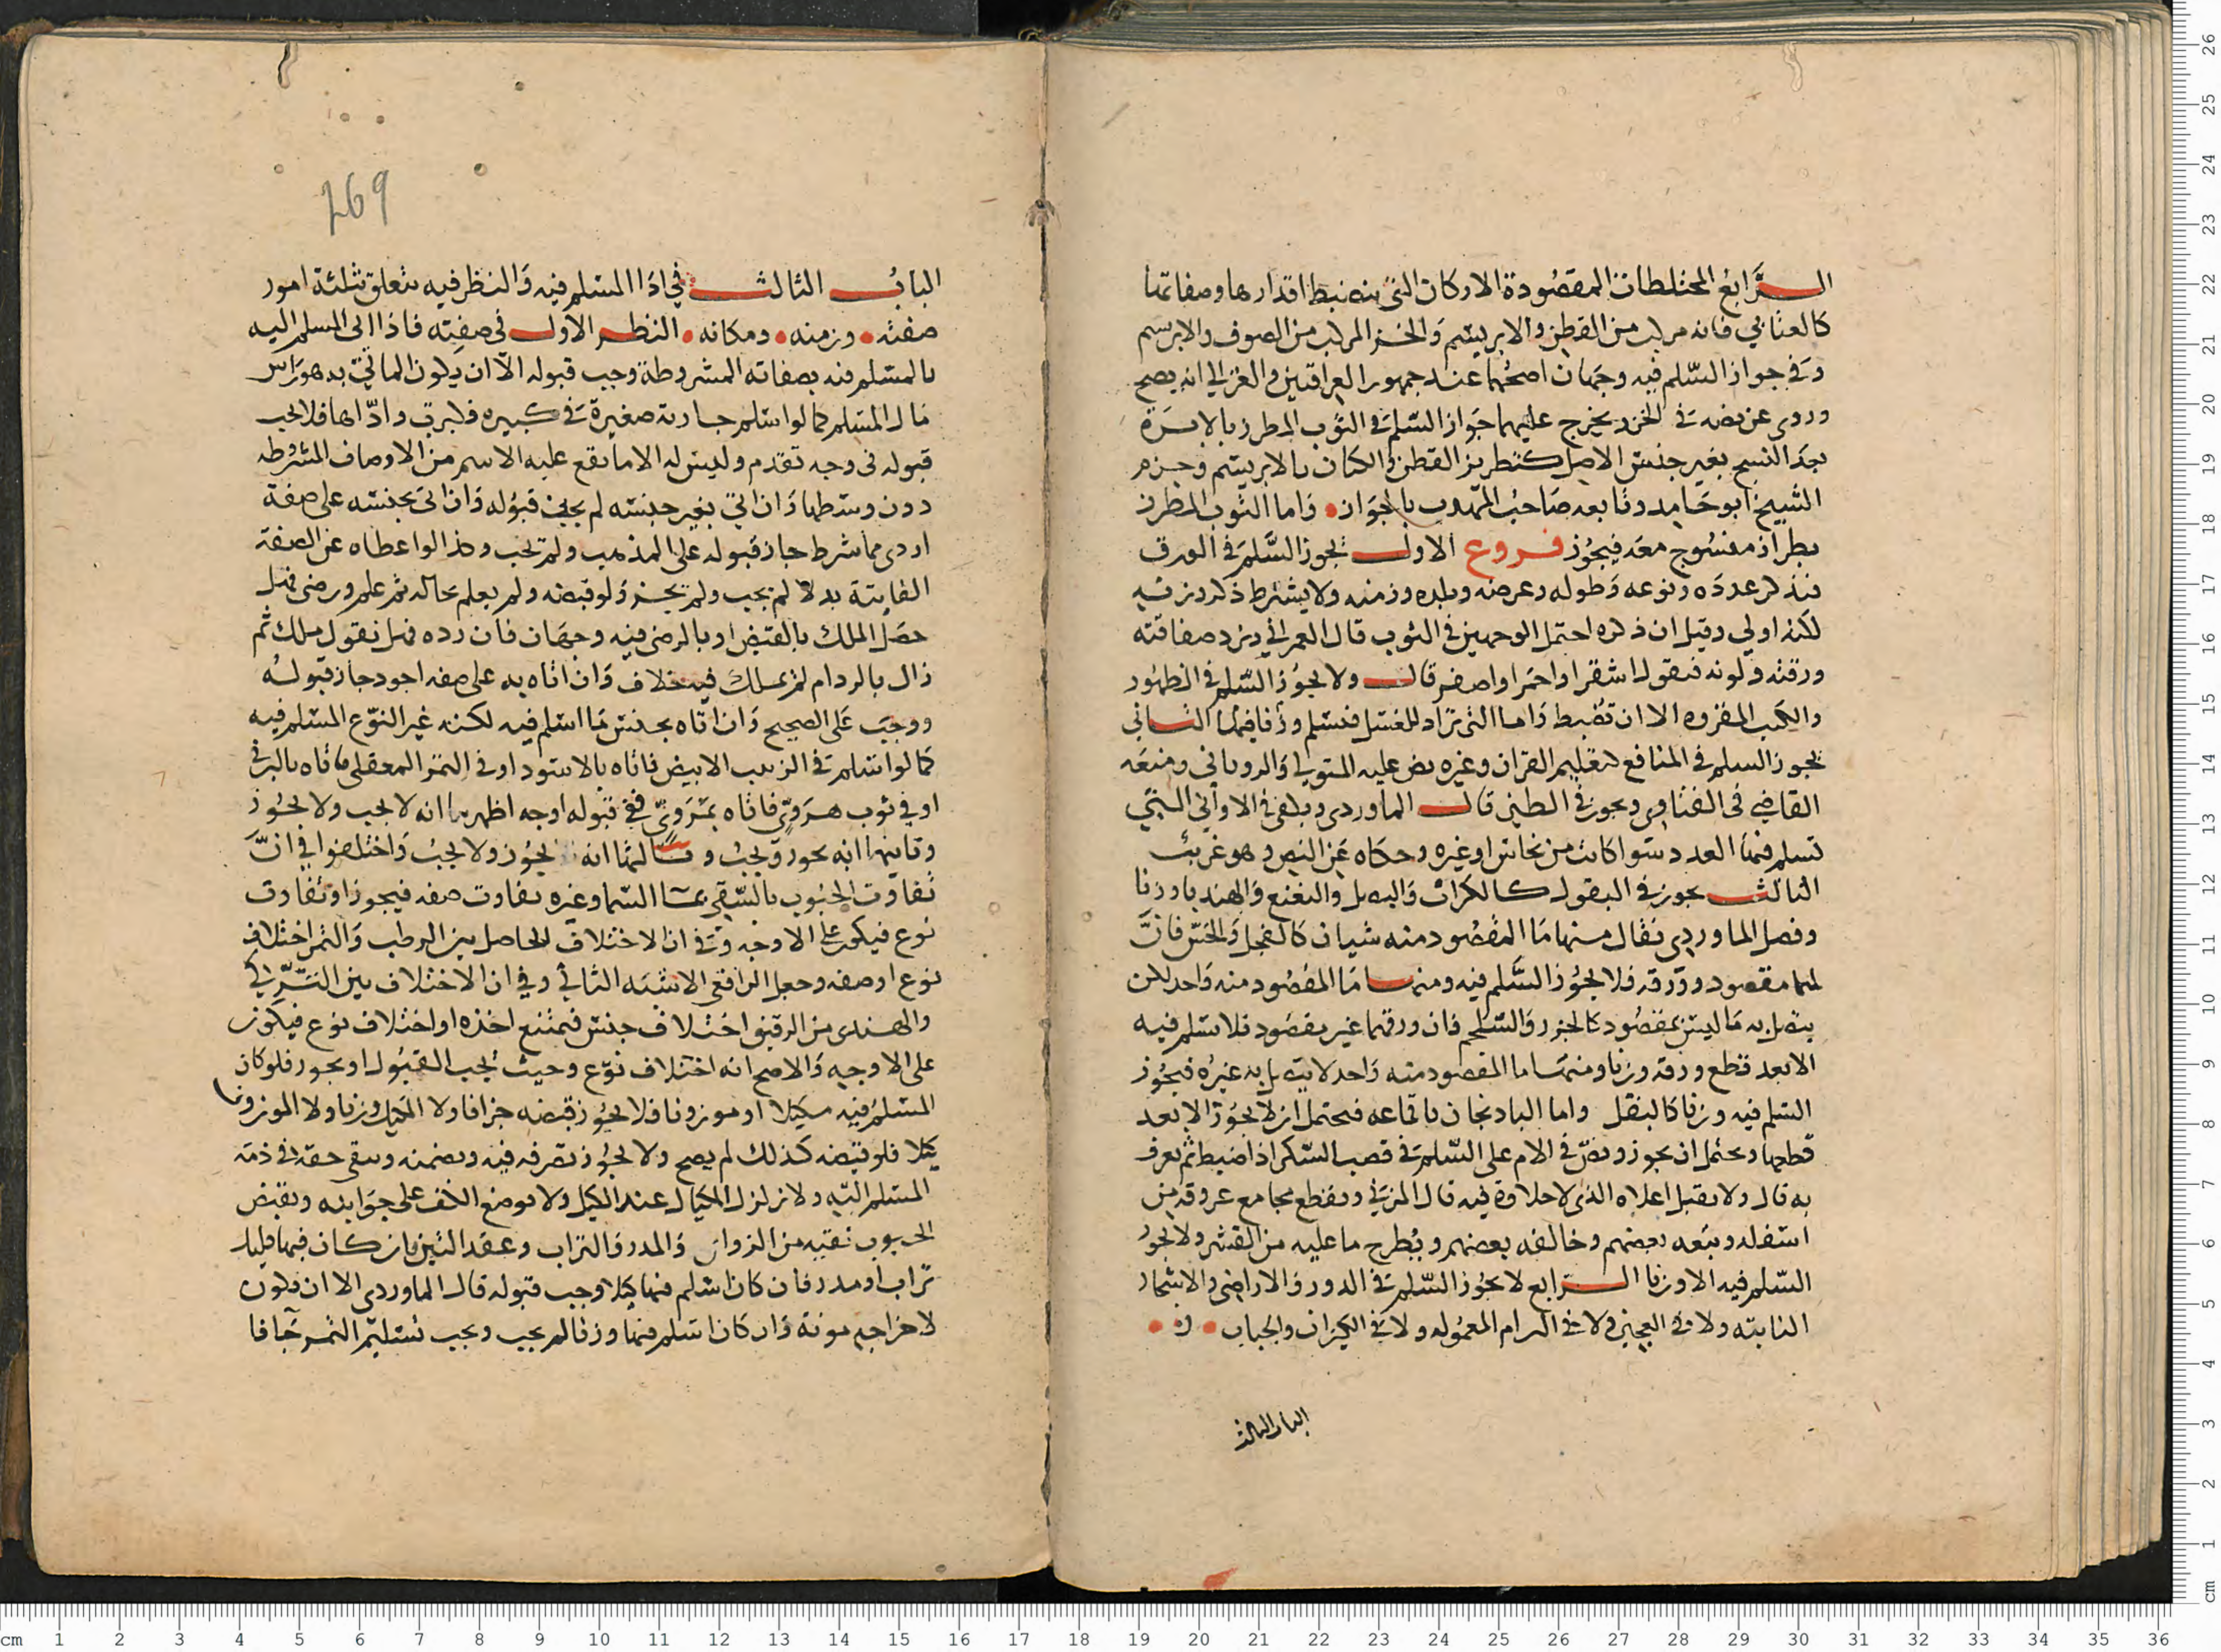 الرابع المختلطات المقصودة الاركان التي تنضبط اقدارها وصفاتها
كالعتابي فانه مركب من القطن والابريسم والخز المركب من الصوف والابريسم
وفي جواز السلم فيه وجهان اصحهما عند جمهور العراقيين والغزالي انه يصح
وروي عن نصه في الخز ويخرج عليهما جواز السلم في الثوب المطرز بالابرة
بعد النسج بغير جنس الاصل كتطريز القطن والكتان بالابريسم وجزم
الشيخ ابو حامد وتابعه صاحب المهذب بالجواز واما الثوب المطرز
بطراز منسوج معه فيجوز فروع الاول يجوز السلم في الورق
فيذكر عدده ونوعه وطوله وعرضه وبلده وزمنه ولا يشترط ذكر وزنه
لكنه اولي وقيل ان ذكره احتمل الوجهين في الثوب قال العمراني ويزيد صفاقته
ورقته ولونه فيقول اشقر او احمر او اصفر قال ولا يجوز السلم في الظهور
والكتب المقروه الا ان تضبط واما التي تراد للغسل فتسلم وزنا فيها الثاني
يجوز السلم في المنافع كتعليم القران وغيره نص عليه المتولي والروياني ومنعه
القاضي في الفتاوي ويجوز في الطين قال الماوردي ويلغى في الاواني التي
تسلم فيها العدد سوا كانت من نحاس او غيره وحكاه عن النص وهو غريب
الثالث يجوز في البقول كالكراث والبصل والنعنع والهندبا وزنا
وفصل الماوردي فقال منها ما المقصود منه شيان كالفجل والخس فان
لبها مقصود وورقه فلا يجوز السلم فيه ومنها ما المقصود منه واحد لكن
يتصل به ما ليس بمقصود كالجزر والسلجم فان ورقهما غير مقصود فلا يسلم فيه
الا بعد قطع ورقه وزنا ومنها ما المقصود منه واحد لا يتصل به غيره فيجوز
السلم فيه وزنا كالبقل واما الباذنجان باقماعه فيحتمل ان لا يجوز الا بعد
قطعها ويحتمل ان يجوز ونص في الام على السلم في قصب السكر اذا ضبط ثم يعرف
به قال ولا يقبل اعلاه الذي لا حلاوة فيه قال المزني ويقطع مجامع عروقه من
اسفله وتبعه بعضهم وخالفه بعضهم ويطرح ما عليه من القشر ولا يجوز
السلم فيه الا وزنا الرابع لا يجوز السلم في الدور والاراضي والاشجار
النابته ولا في العجين ولا في البرام المعموله ولا في الكيزان والجباب
الباب الثالث
769
الباب الثالث في اذا المسلم فيه والنظر فيه يتعلق بثلثة امور
صفته وزمنه ومكانه النظر الاول في صفته فاذا اتى المسلم اليه
بالمسلم فيه بصفاته المشروطة وجب قبوله الا ان يكون الماتي به هو راس
مال المسلم كما لو اسلم جارية صغيرة في كبيره فكبرت واداها فلا يجب
قبوله في وجه تقدم وليس له الا ما يقع عليه الاسم من الاوصاف المشروطه
دون وسطها وان اتي بغير جنسه لم يجز قبوله وان اتى بجنسه على صفة
اردى مما شرط جاز قبوله على المذهب ولم تجب وكذا لو اعطاه عن الصفة
الفايتة بدلا لم يجب ولم يجز ولو قبضه ولم يعلم بحاله ثم علم ورضي فهل
حصل الملك بالقبض او بالرضى فيه وجهان فان رده فهل نقول ملك ثم
زال بالرد ام لم يملك فيه خلاف وان اتاه به على صفه اجود جاز قبوله
ووجب على الصحيح وان اتاه بجنس ما اسلم فيه لكنه غير النوع المسلم فيه
كما لو اسلم في الزبيب الابيض فاتاه بالاسود او في التمر المعقلي فاتاه بالبرني
او في ثوب هروي فاتاه بمروي ففي قبوله اوجه اظهرها انه لا يجب ولا يجوز
وثانيها انه يجوز ويجب وثالثها انه يجوز ولا يجب واختلفوا في ان
تفاوت الحبوب بالسقي بما السما وغيره تفاوت صفه فيجوز او تفاوت
نوع فيكون على الاوجه وفي ان الاختلاف الحاصل بين الرطب والتمر اختلاف
نوع او صفه وجعل الرافعي الاشبه الثاني وفي ان الاختلاف بين التركي
والهندي من الرقيق اختلاف جنس فيمتنع اخذه او اختلاف نوع فيكون
على الاوجه والاصح انه اختلاف نوع وحيث يجب القبول او يجوز فلو كان
المسلم فيه مكيلا او موزونا فلا يجوز قبضه جزافا ولا المكيل وزنا ولا الموزون
كيلا فلو قبضه كذلك لم يصح ولا يجوز تصرفه فيه ويضمنه ويبقى حقه في ذمة
المسلم اليه ولا يزلزل المكيال عند الكيل ولا يوضع الكف على جوانبه ويقبض
الحبوب نقيه من الزوان والمدر والتراب وعقد التبن فان كان فيها قليل
تراب او مدر فان كان اسلم فيها كيلا وجب قبوله قال الماوردي الا ان يكون
لاخراجه مونة وان كان اسلم فيها وزنا لم يجب ويجب تسليم التمر جافا